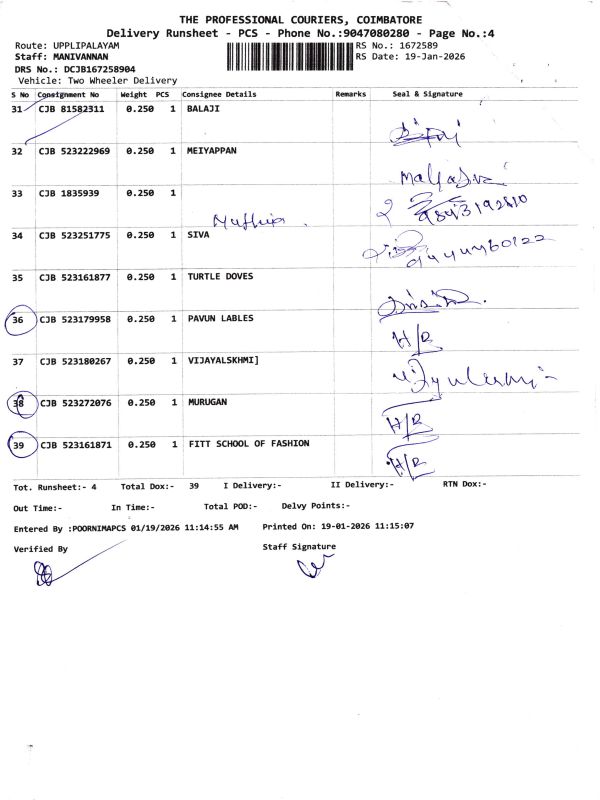 THE PROFESSIONAL COURIERS, COIMBATORE
Delivery Runsheet - PCS - Phone No.:9047080280 - Page No.:4
Route: UPPLIPALAYAM RS No.: 1672589
Staff: MANIVANNAN RS Date: 19-Jan-2026
DRS No.: DCJB167258904
Vehicle: Two Wheeler Delivery
S No Consignment No Weight PCS Consignee Details Remarks Seal & Signature
31 CJB 81582311 0.250 1 BALAJI
32 CJB 523222969 0.250 1 MEIYAPPAN
33 CJB 1835939 0.250 1
34 CJB 523251775 0.250 1 SIVA
35 CJB 523161877 0.250 1 TURTLE DOVES
36 CJB 523179958 0.250 1 PAVUN LABLES H/R
37 CJB 523180267 0.250 1 VIJAYALSKHMI]
38 CJB 523272076 0.250 1 MURUGAN H/R
39 CJB 523161871 0.250 1 FITT SCHOOL OF FASHION H/R
Tot. Runsheet:- 4 Total Dox:- 39 I Delivery:- II Delivery:- RTN Dox:-
Out Time:- In Time:- Total POD:- Delvy Points:-
Entered By :POORNIMAPCS 01/19/2026 11:14:55 AM Printed On: 19-01-2026 11:15:07
Verified By Staff Signature